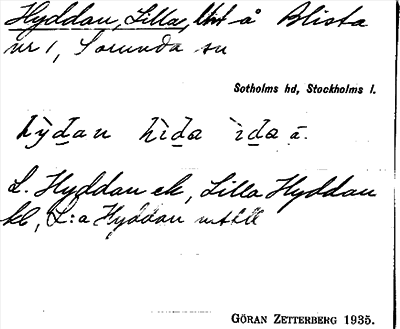 Hyddan, Lilla, lht å Blista
nr 1, Sorunda sn
Sotholms hd, Stockholms l.
hỳd̲an hìd̲a ìd̲a ā.
L. Hyddan ek, Lilla Hyddan
kb, L:a Hyddan
GÖRAN ZETTERBERG 1935.